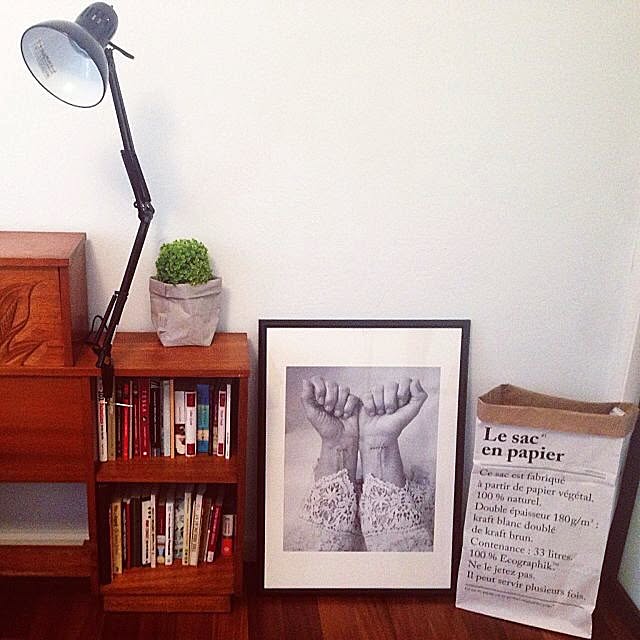 Le sac
en papier
Ce sac est fabriqué
à partir de papier végétal.
100 % naturel.
Double épaisseur 180g/m² :
kraft blanc doublé
de kraft brun.
Contenance : 33 litres.
100 % Ecographik™
Ne le jetez pas.
Il peut servir plusieurs fois.